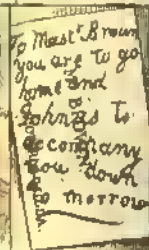 To Mast.r Brown
you are to go
home and
John is to
accompany
you down
to morrow